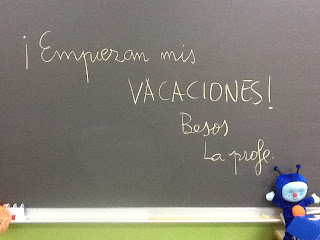 ¡Empiezan mis
VACACIONES!
Besos
La profe.